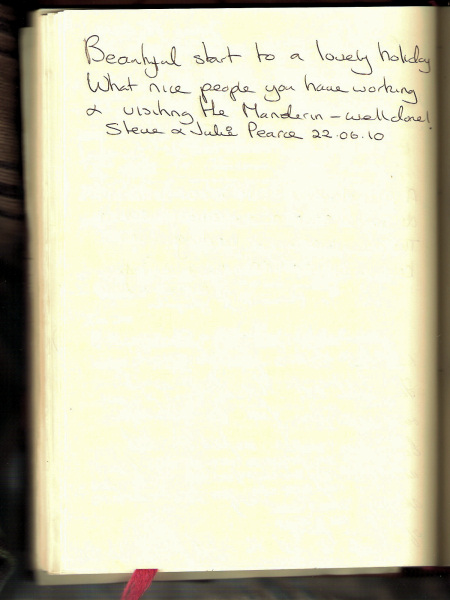 Beautiful start to a lovely holiday
What nice people you have working
& visiting the Manderin - well done!
Steve & Julie Pearce 22.06.10